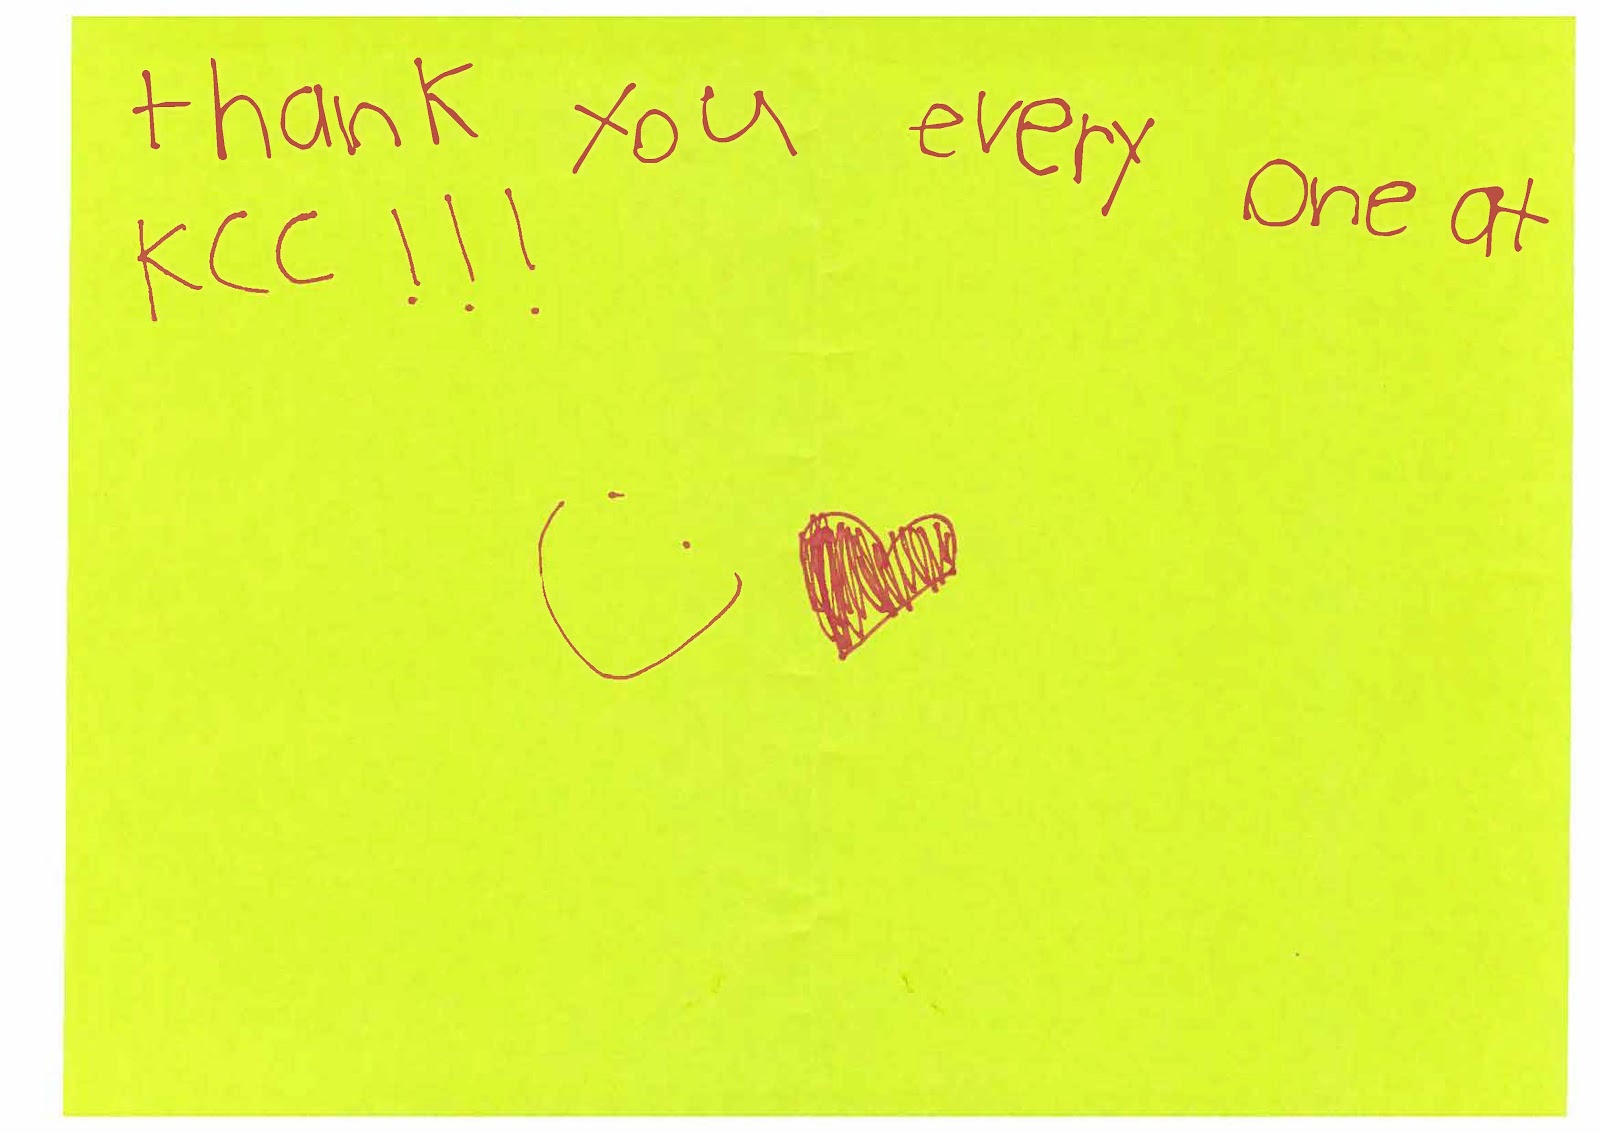 thank you every one at
KCC!!!